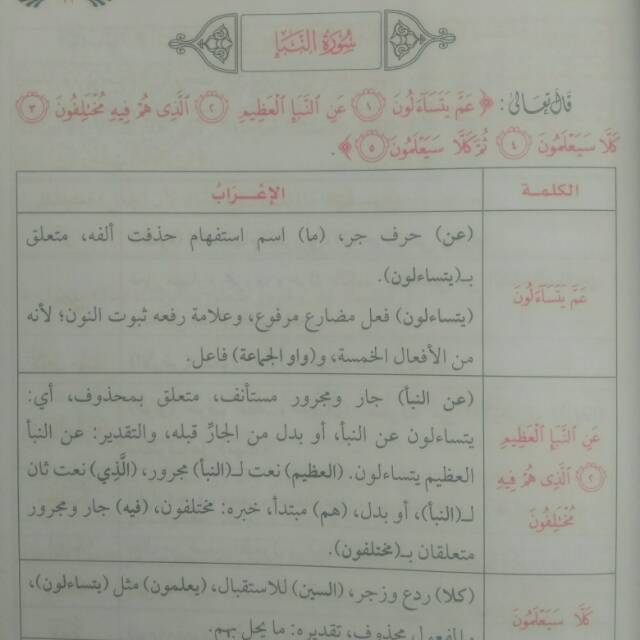 سُورَةُ النَّبَإِ
قال تعالى: ﴿عَمَّ يَتَسَاءَلُونَ ١ عَنِ النَّبَإِ الْعَظِيمِ ٢ الَّذِي هُمْ فِيهِ مُخْتَلِفُونَ ٣
كَلَّا سَيَعْلَمُونَ ٤ ثُمَّ كَلَّا سَيَعْلَمُونَ ٥﴾.
الكلمة الإعراب
عَمَّ يَتَسَاءَلُونَ
(عن) حرف جر، (ما) اسم استفهام حذفت ألفه، متعلق
بـ(يتساءلون).
(يتساءلون) فعل مضارع مرفوع، وعلامة رفعه ثبوت النون؛ لأنه
من الأفعال الخمسة، و(واو الجماعة) فاعل.
عَنِ النَّبَإِ الْعَظِيمِ
٢ الَّذِي هُمْ فِيهِ
مُخْتَلِفُونَ
(عن النبأ) جار ومجرور مستأنف، متعلق بمحذوف، أي:
يتساءلون عن النبأ، أو بدل من الجارِّ قبله، والتقدير: عن النبأ
العظيم يتساءلون. (العظيم) نعت لـ(النبأ) مجرور، (الَّذِي) نعت ثان
لـ(النبأ)، أو بدل، (هم) مبتدأ، خبره: مختلفون، (فيه) جار ومجرور
متعلقان بـ(مختلفون).
كَلَّا سَيَعْلَمُونَ
(كلا) ردع وزجر، (السين) للاستقبال، (يعلمون) مثل (يتساءلون)،
والمفعول محذوف، تقديره: ما يحل بهم.